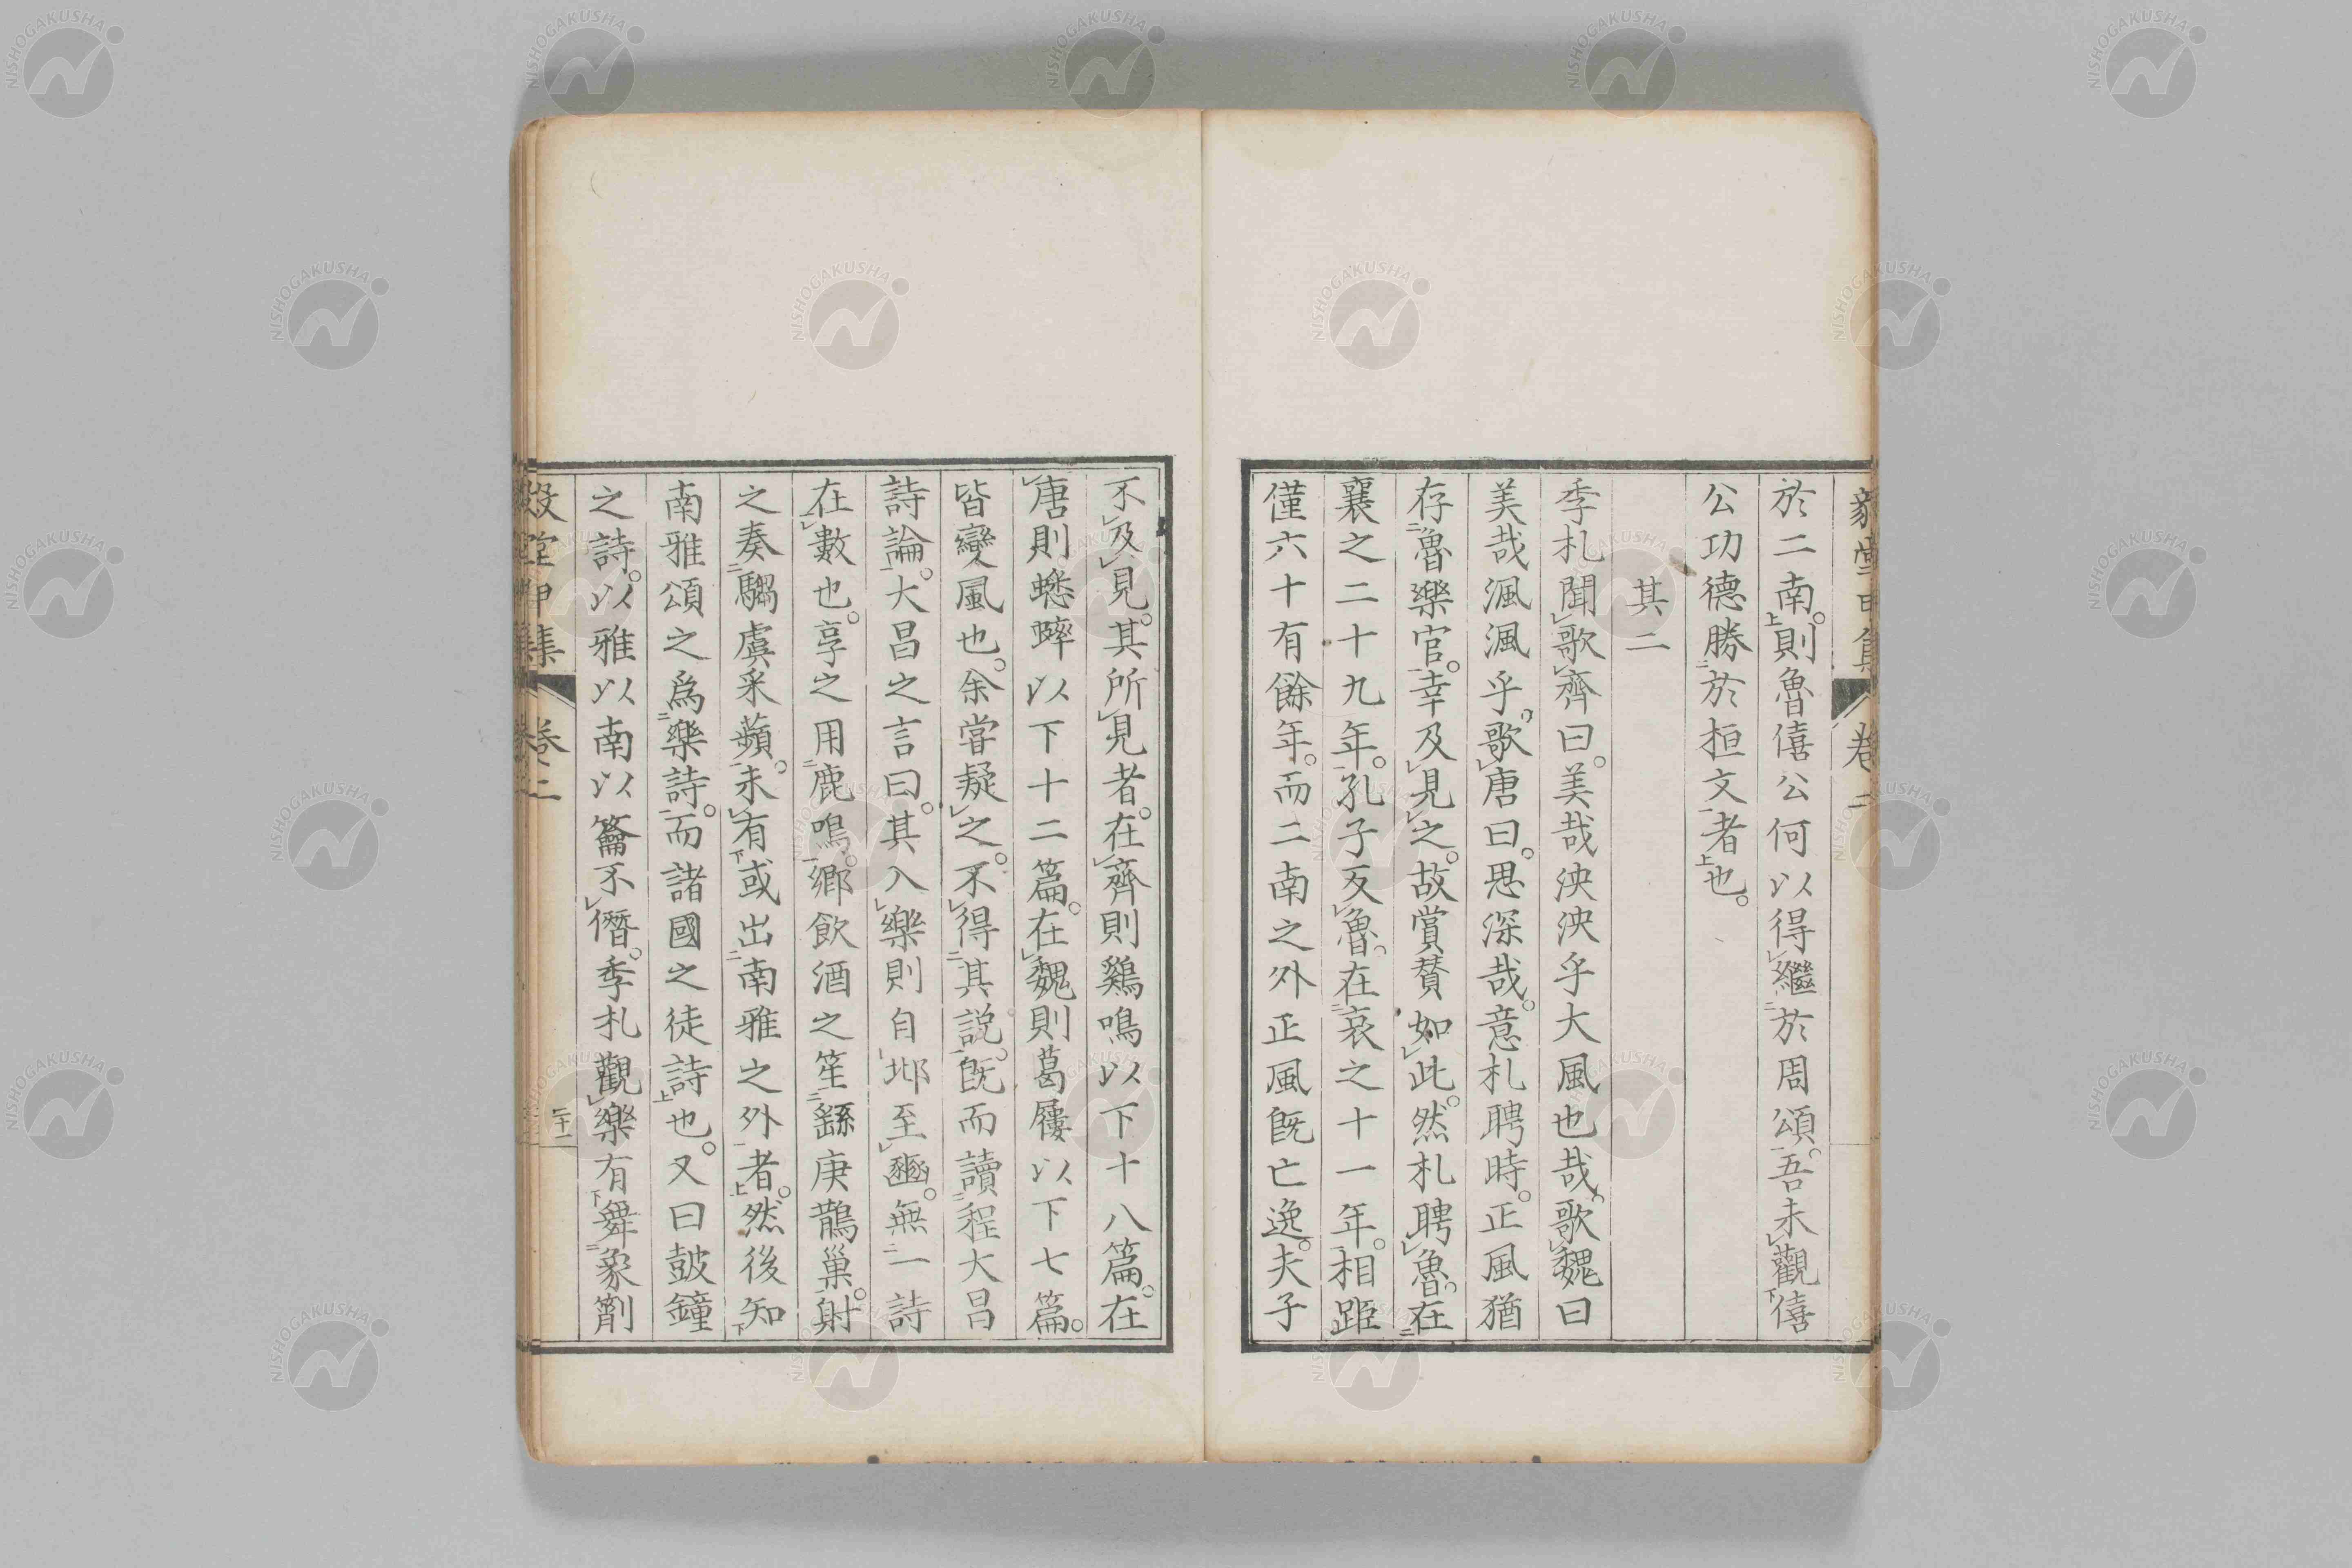 於二南。則魯僖公何以得繼於周頌。吾未觀僖
公功德勝於桓文者也。
其二
季札聞歌齊曰。美哉泱泱乎大風也哉。歌魏曰
美哉渢渢乎。歌唐曰。思深哉。意札聘時。正風猶
存魯樂官。幸及見之。故賞贊如此。然札聘魯。在
襄之二十九年。孔子反魯。在哀之十一年。相距
僅六十有餘年。而二南之外正風既亡逸。夫子
不及見。其所見者。在齊則鷄鳴以下十八篇。在
唐則蟋蟀以下十二篇。在魏則葛屨以下七篇。
皆變風也。余嘗疑之。不得其説。既而讀程大昌
詩論。大昌之言曰。其入樂則自邶至豳。無一詩
在數也。享之用鹿鳴。鄉飲酒之笙繇庚鵲巢。射
之奏騶虞采蘋。未有或出南雅之外者。然後知
南雅頌之爲樂詩。而諸國之徒詩也。又曰鼓鐘
之詩。以雅以南以籥不僭。季札觀樂有舞象箾
卷二
二十二